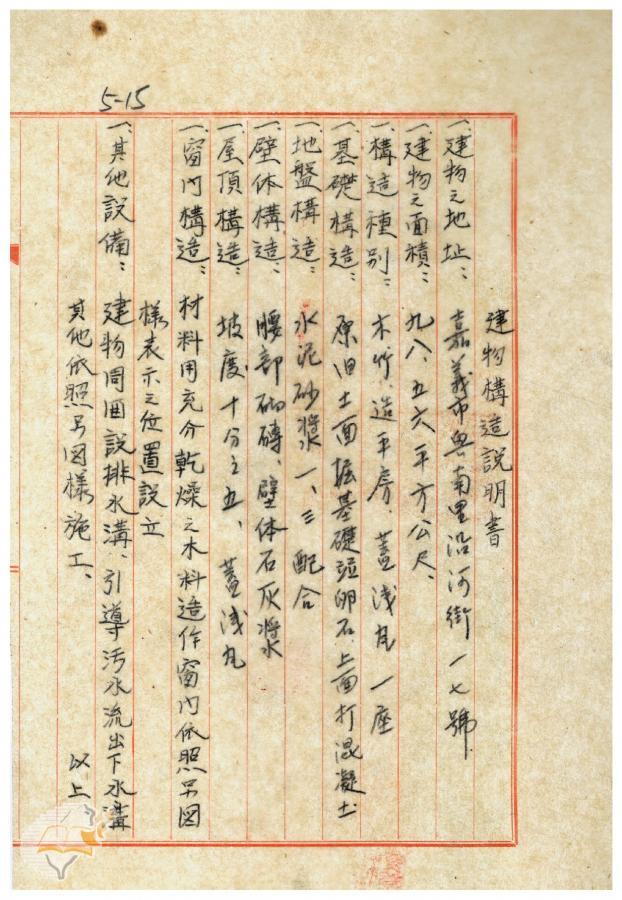 5-15
建物構造説明書
一、建物之地址： 嘉義市興南里沿河街一七號
一、建物之面積： 九八、五六平方公尺、
一、構造種別： 木竹、造平房、蓋浅瓦一座
一、基礎構造： 原旧土面掘基礎並卵石、上面打混凝土
一、地盤構造： 水泥砂漿一、三配合
一、壁体構造： 腰部砌磚、壁体石灰漿
一、屋頂構造： 坡度十分之五、蓋浅瓦
一、窗门構造： 材料用充分乾燥之木料造作窗门依照另図
樣表示之位置設立
一、其他設備： 建物周囲設排水溝、引導污水流出下水溝
其他依照另図樣施工、 以上